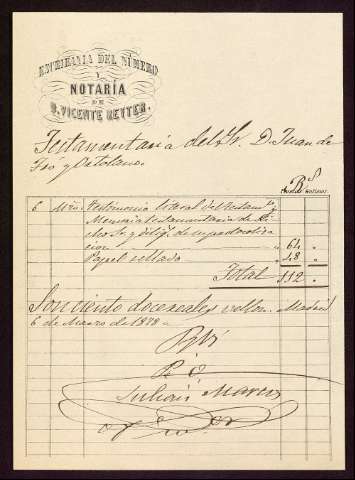 ESCRIBANIA DEL NÚMERO
Y
NOTARÍA
DE
D. VICENTE REYTER.
Testamentaria del Sr. D. Juan de
y Ortolano.
Rs
6 Mzo. Testimonio literal del testamto. y
Memoria testamentaria de di-
cho Sr. y dilig.s de su protocoliza-
cion " 64 "
Papel sellado " 48 "
Total 112 "
Son ciento doce reales vellon. Madrid
6 de Marzo de 1878.
Rbi
P. O.
Julian Marcos